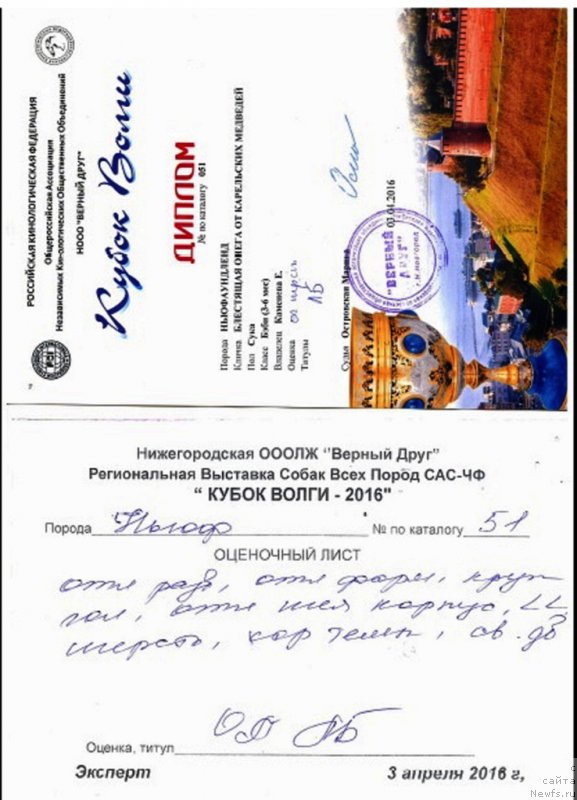 РОССИЙСКАЯ КИНОЛОГИЧЕСКАЯ ФЕДЕРАЦИЯ
Общероссийская Ассоциация
Независимых Кинологических Общественных Объединений
НООО "ВЕРНЫЙ ДРУГ"
Кубок Волги
ДИПЛОМ
№ по каталогу 051
Порода НЬЮФАУНДЛЕНД
Кличка БЛЕСТЯЩАЯ ОВЕГА ОТ КАРЕЛЬСКИХ МЕДВЕДЕЙ
Пол Сука
Класс Бэби (3-6 мес)
Владелец Каменева Е.
Оценка
Титулы ЛБ
Судья Островская Марина
03.04.2016
"ВЕРНЫЙ ДРУГ"
Нижегородская ОООЛЖ "Верный Друг"
Региональная Выставка Собак Всех Пород САС-ЧФ
" КУБОК ВОЛГИ - 2016"
Порода Ньюф № по каталогу 51
ОЦЕНОЧНЫЙ ЛИСТ
отл разв, отл форм, круп
гол, отл шея корпус,
шерсть, хор темп, св.
Оценка, титул ОП ЛБ
Эксперт 3 апреля 2016 г,
с сайта
Newfs.ru